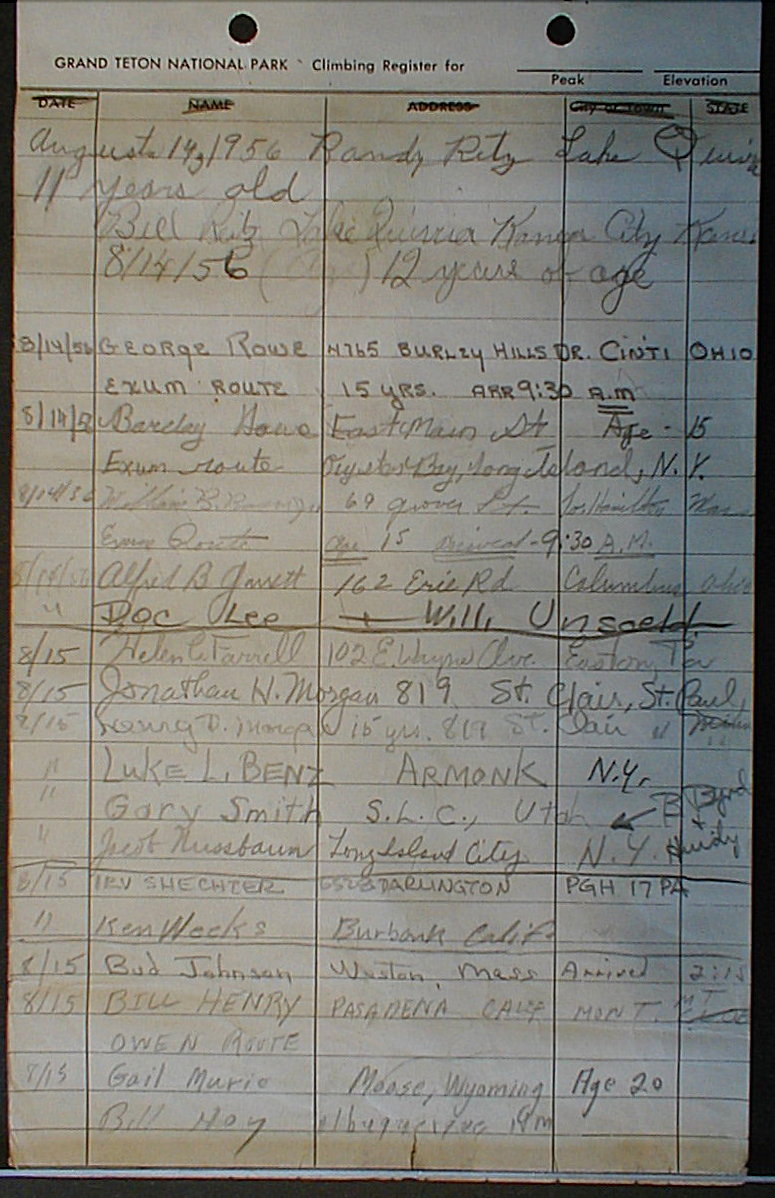 GRAND TETON NATIONAL PARK Climbing Register for
Peak Elevation
DATE NAME ADDRESS City or Town STATE
August 14, 1956 Randy Ritz Lake Quivira
11 years old
Bill Ritz Lake Quivira Kansas City Kans
8/14/56 (Age) 12 years of age
8/14/56 GEORGE ROWE 4765 BURLEY HILLS DR. CINTI OHIO
EXUM ROUTE 15 YRS. ARR 9:30 A.M
8/14/5 Barclay East Main St Age - 15
Exum route Oyster Bay, Long Island, N.Y.
8/14/56 William B. 69 Grover St. So. Hamilton Mass
Exum Route Age 15 Arrived - 9:30 A.M.
8/14/56 Alfred B Garrett 162 Erie Rd Columbus Ohio
" Doc Lee + Willi Unsoeld
8/15 Helen C. Farrell 102 E. Wayne Ave. Easton, Pa
8/15 Jonathan H. Morgan 819 St. Clair, St. Paul,
8/15 D. Morgan 15 yrs. 819 St. Clair " Minn
" LUKE L. BENZ ARMONK N.Y.
" Gary Smith S.L.C., Utah B Byrd
+
" Jacob Nussbaum Long Island City N.Y.
8/15 IRV SHECHTER DARLINGTON PGH 17 PA
" Ken Weeks Burbank Calif.
8/15 Bud Johnson Weston, Mass Arrived 2:15
8/15 BILL HENRY PASADENA CALIF MONT.
OWEN ROUTE
8/15 Gail Murie Moose, Wyoming Age 20
Bill Hoy Albuquerque NM